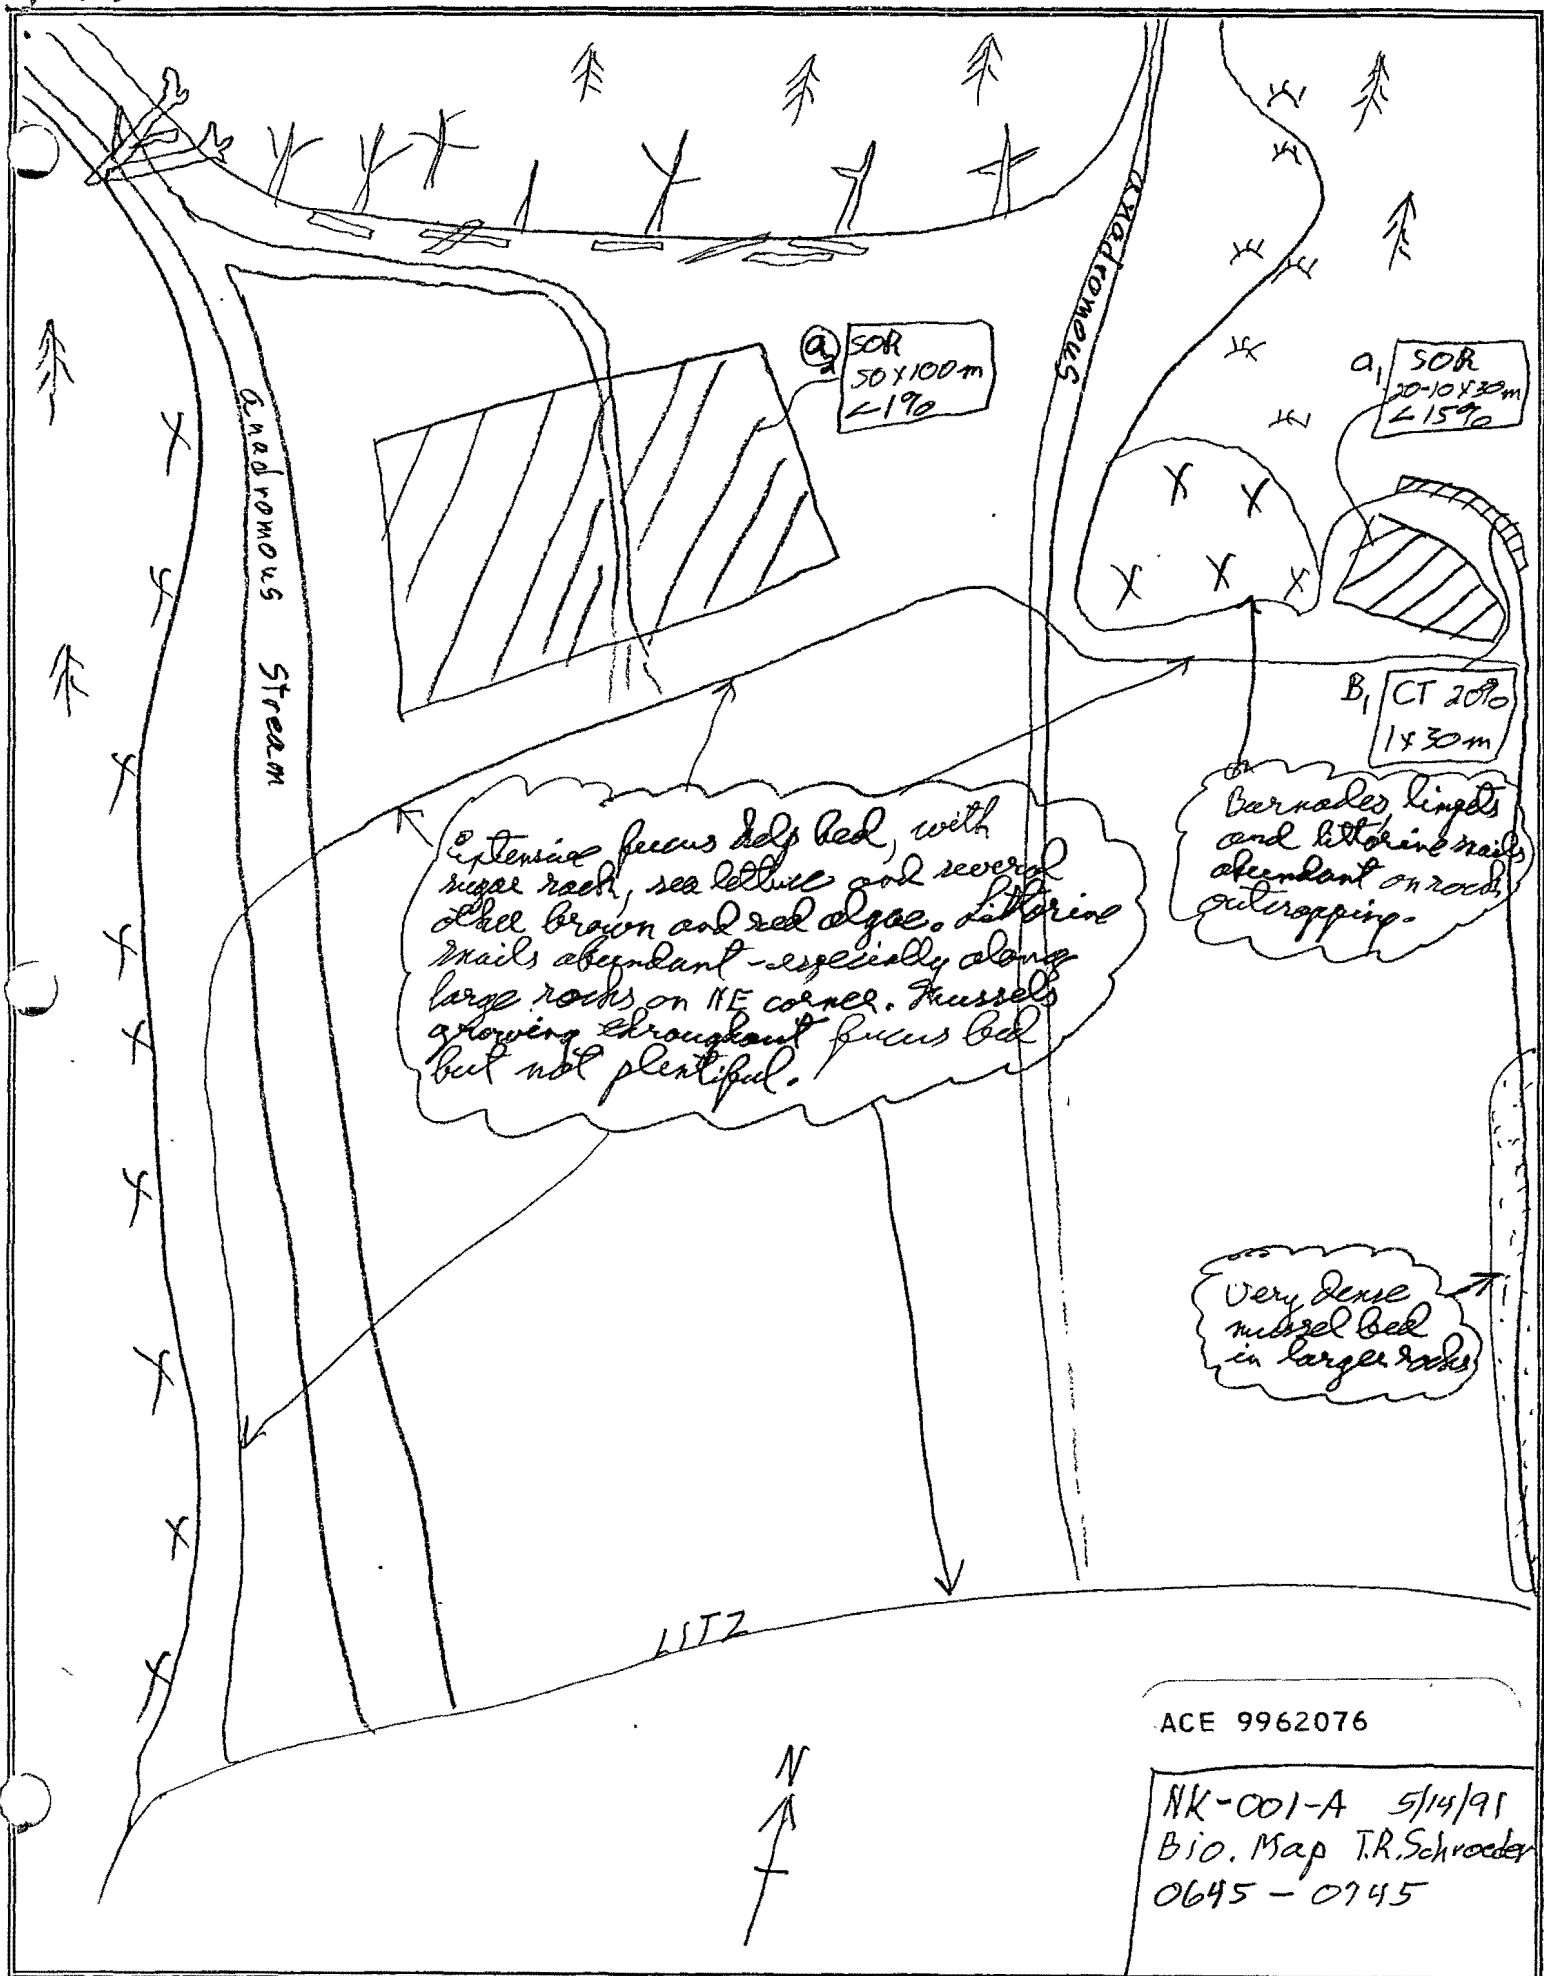 anadromous
a2
SOR
50 x 100 m
<1%
a1
SOR
20-10 x 30m
<15%
anadromous Stream
B1
CT 20%
1 x 30 m
Extensive fucus kelp bed, with
sugar rack, sea lettuce and several
other brown and red algae. Littorine
snails abundant - especially along
large rocks on NE corner. Mussels
growing throughout fucus bed
but not plentiful.
Barnacles, limpets
and littorine snails
abundant on rock
outcropping.
Very dense
mussel bed
in larger rocks
LITZ
N
ACE 9962076
NK-001-A 5/14/91
Bio. Map T.R. Schroeder
0645 - 0745